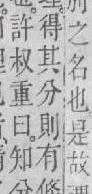 別之名也是故謂
得其分則有條
也許叔重曰知分